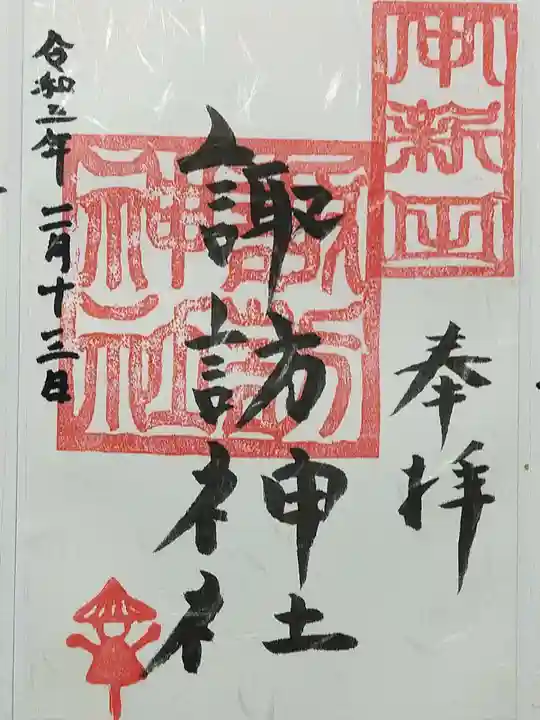 中新田
奉拝
諏訪神社
諏訪神社
令和三年 二月十三日